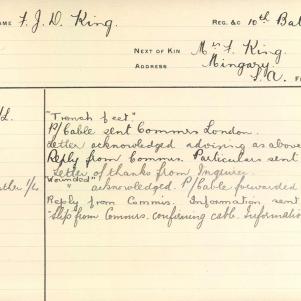 AME F. J. D. King. REG. &C 10th Bat
NEXT OF KIN Mrs F. King.
ADDRESS Mingary
S.A.
/L.
"Trench feet"
P/Cable sent Commrs London.
Letter acknowledged advising as above
Reply from Commrs. Particulars sent
Letter of thanks from Inquirer.
"Wounded"
" acknowledged. P/Cable forwarded
Reply from Commrs. Information sent
"Slip from Commrs. confirming cable. Informatio